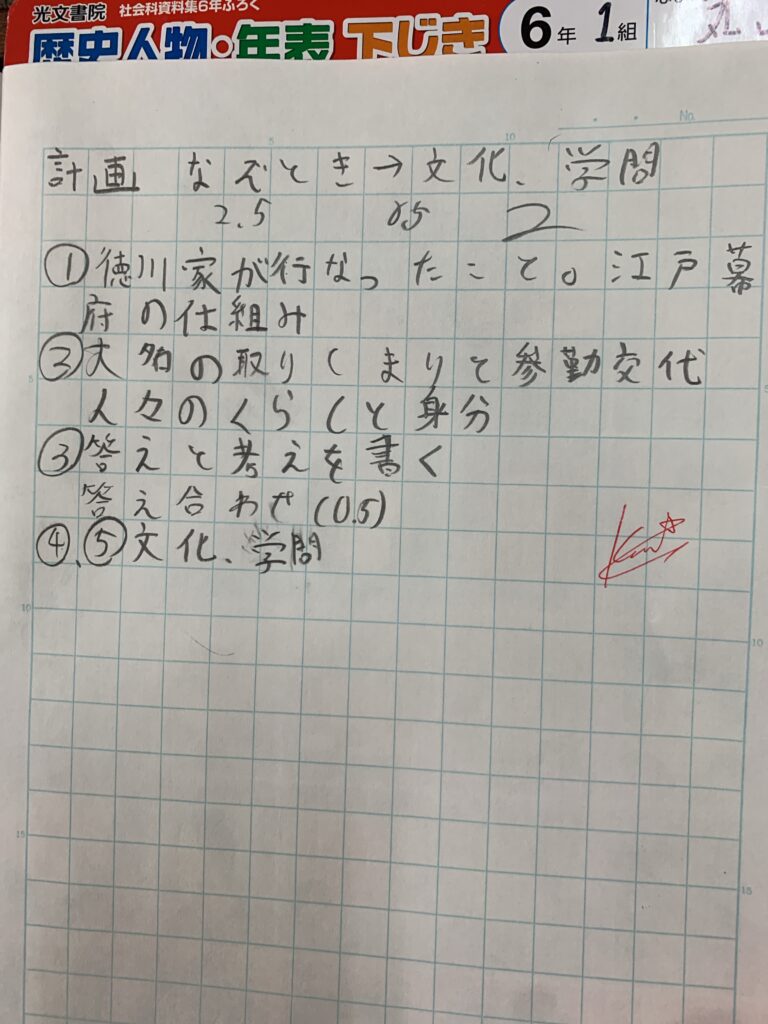 光文書院 社会科資料集6年ふろく
歴史人物・年表 下じき
6年 1組
No.
5 10
計画 なぞとき→文化、学問
2.5 0.5 2
①徳川家が行なったこと。江戸幕
府の仕組み
②大名の取りしまりと参勤交代
人々のくらしと身分
③答えと考えを書く
答え合わせ(0.5)
④、⑤文化、学問
5
10
10
15
15